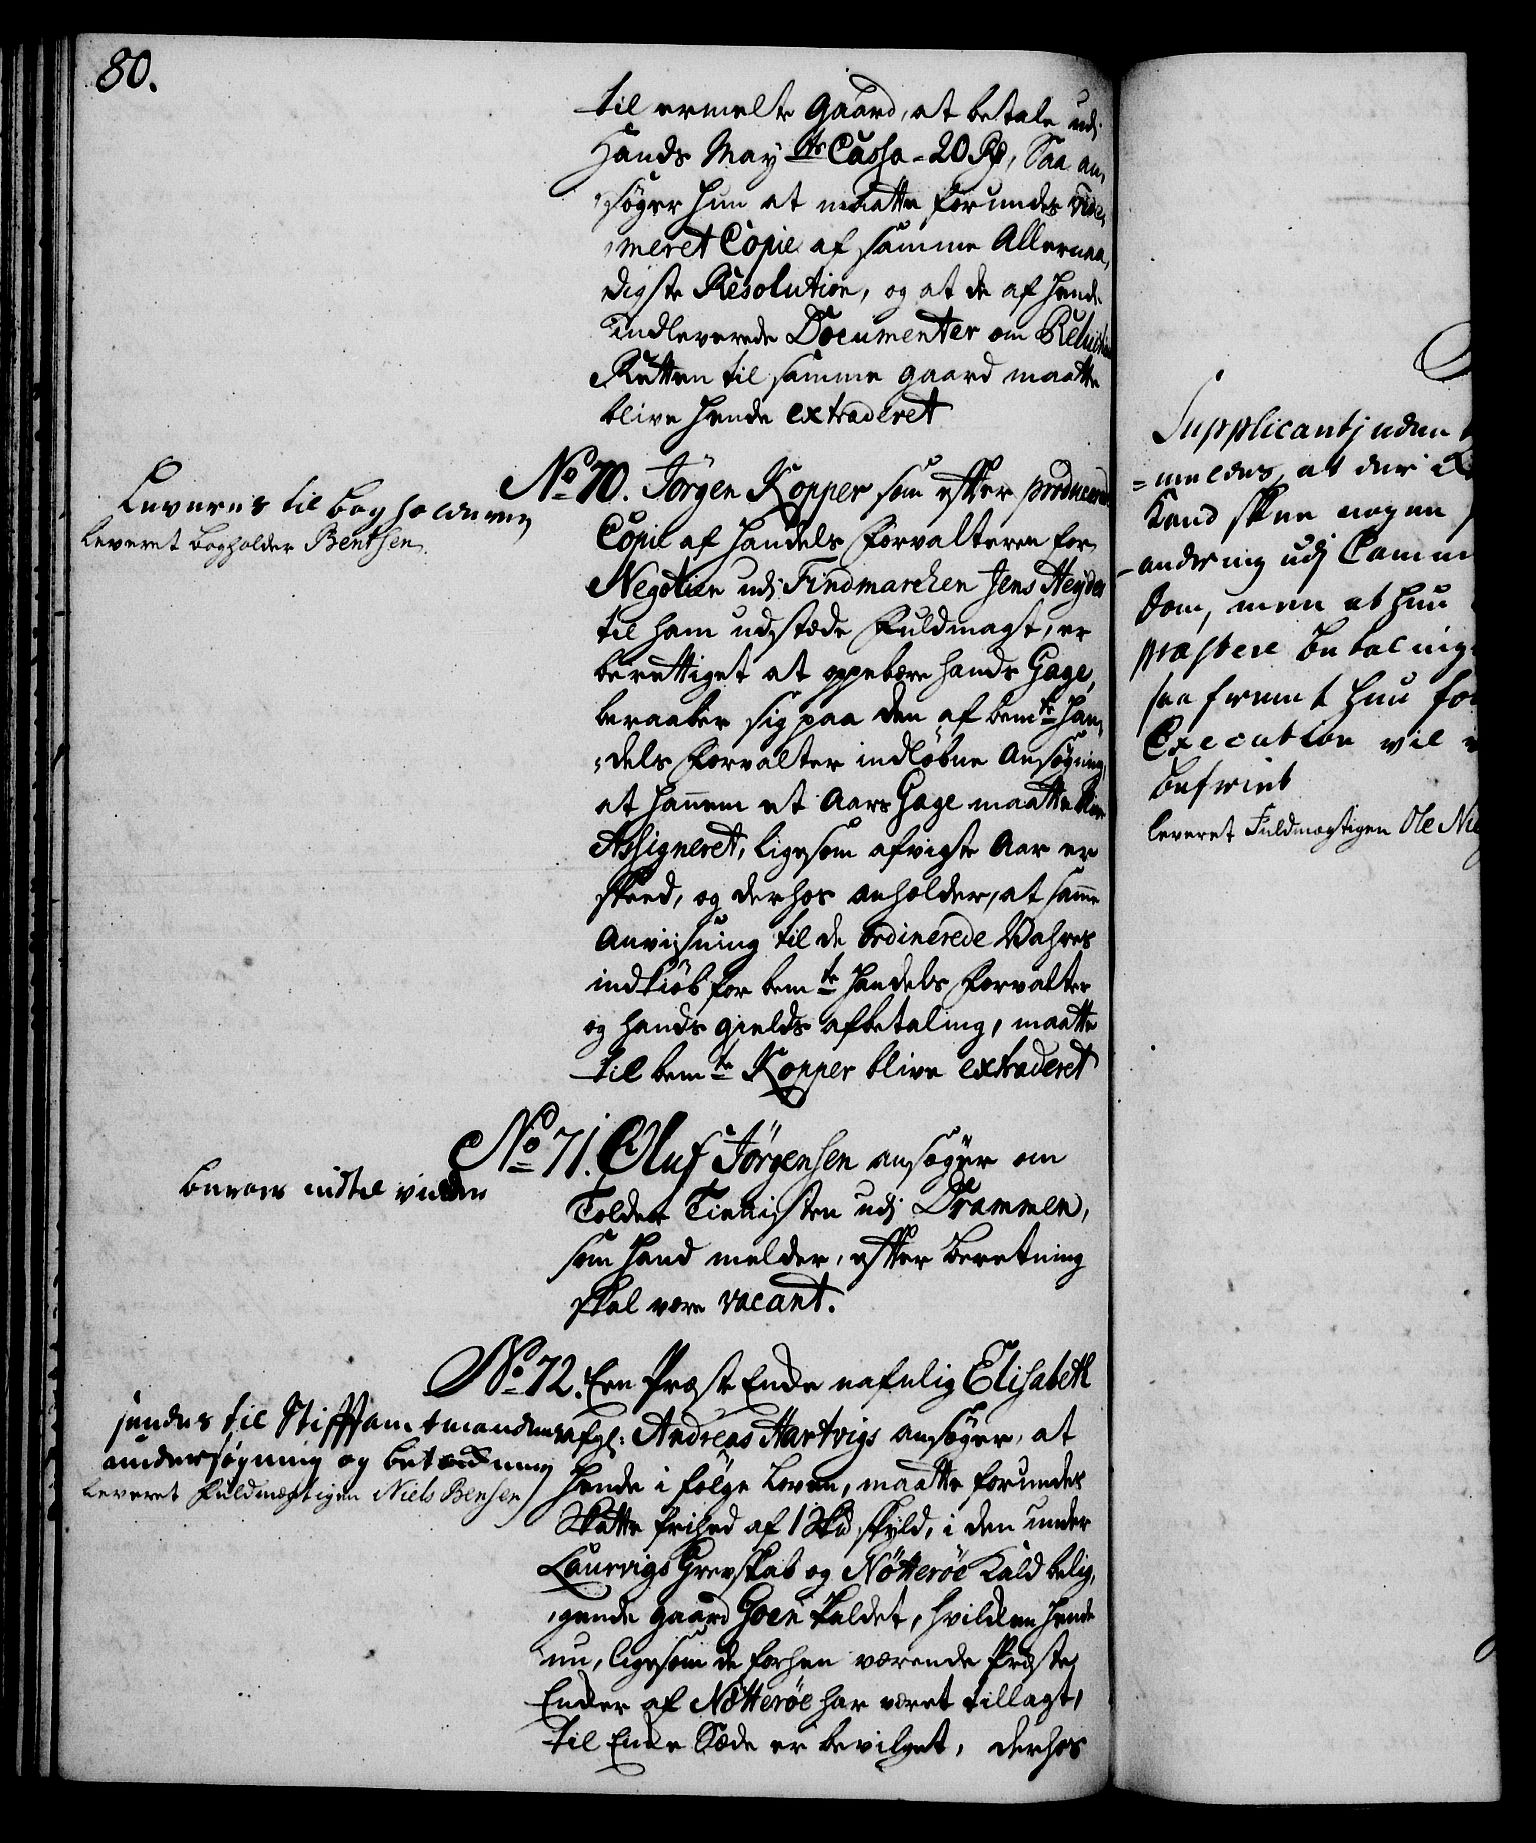 80.
til ermelte Gaard, at betale udj
Hands May.ts Cassa 20 Rd, Saa an,
søger hun at maatte forundes Vide,
meret Copie af samme Allernaa,
digste Resolution, og at de af hende
Indleverede Documenter om Reluitions
Retten til samme gaard maatte
blive hende extraderet
Leveres til bogholderen
leveret bogholder Bentsen.
No 70. Jörgen Kopper som efter produceret
Copie af Handels Forvalteren for
Negotien udj Findmarchen Jens Heyder
til ham udstæde Fuldmagt, er
berettiget at oppebære hands Gage,
beraaber sig paa den af bemte Han,
dels Forvalter indløbne Ansøgning,
at hannem et Aars Gage maatte blive
Assigneret, ligesom afvigte Aar er
skeed, og derhos anholder, at samme
Anvisning til de ordinerede Vahres
indkiöb for bemte Handels Forvalter
og hands gields afbetaling, maatte
til bemte Kopper blive extraderet
No 71. Oluf Jörgensen ansøger om
Tolder Tienisten udj Drammen,
som hand melder, efter beretning
skal være vacant.
beroer indtil videre
No 72. Een Præste Enke nafnlig Elisabeth
afgl: Andreas Hartvigs ansøger, at
hende i følge Loven, maatte forundes
Skatte frihed af 1 Skd skyld, i den under
Laurvigs Grevskab og Nötteröe Kald belig,
gende gaard Goen kaldet, hvilken hende
nu, ligesom de forhen værende Præste
Enker af Nötteröe har været tillagt,
til Enke Sæde er bevilget, derhos
sendes til Stifftamtmandens
undersøgning og betænkning
leveret fuldmægtigen Niels Bensen
Supplicantinden
meldes, at der
Kand skee nogen
andring udj Camm
dom, men at hun
præstere betaling
saa fremt hun for
Execution vil
befriet
leveret Fuldmægtigen Ole